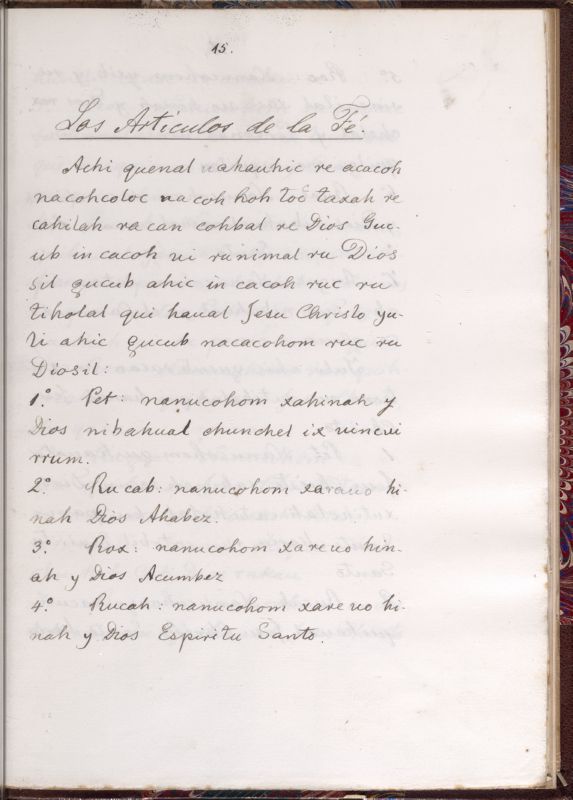 15.
Los Artículos de la Fé.
Achi quenal uahauhic re acacoh
nacohcoloc nacoh hoh toc taxah re
cahilah racan cohbal re Dios Guc-
ub in cacoh ui runimal ru Dios
sil gucub ahic in cacoh ruc ru
tiholal qui haual Jesu Christo yu-
li ahic gucub nacacohom ruc ru
Diosil:
1.° Pet: nanucohom xahinah y
Dios nibahual chunchel ix uincui
rrum.
2.° Rucab: nanucohom xarauo hi-
nah Dios Ahabez.
3.° Rox: nanucohom xareuo hin-
ah y Dios Acumbez
4.° Rucah: nanucohom xareuo hi-
nah y Dios Espiritu Santo.